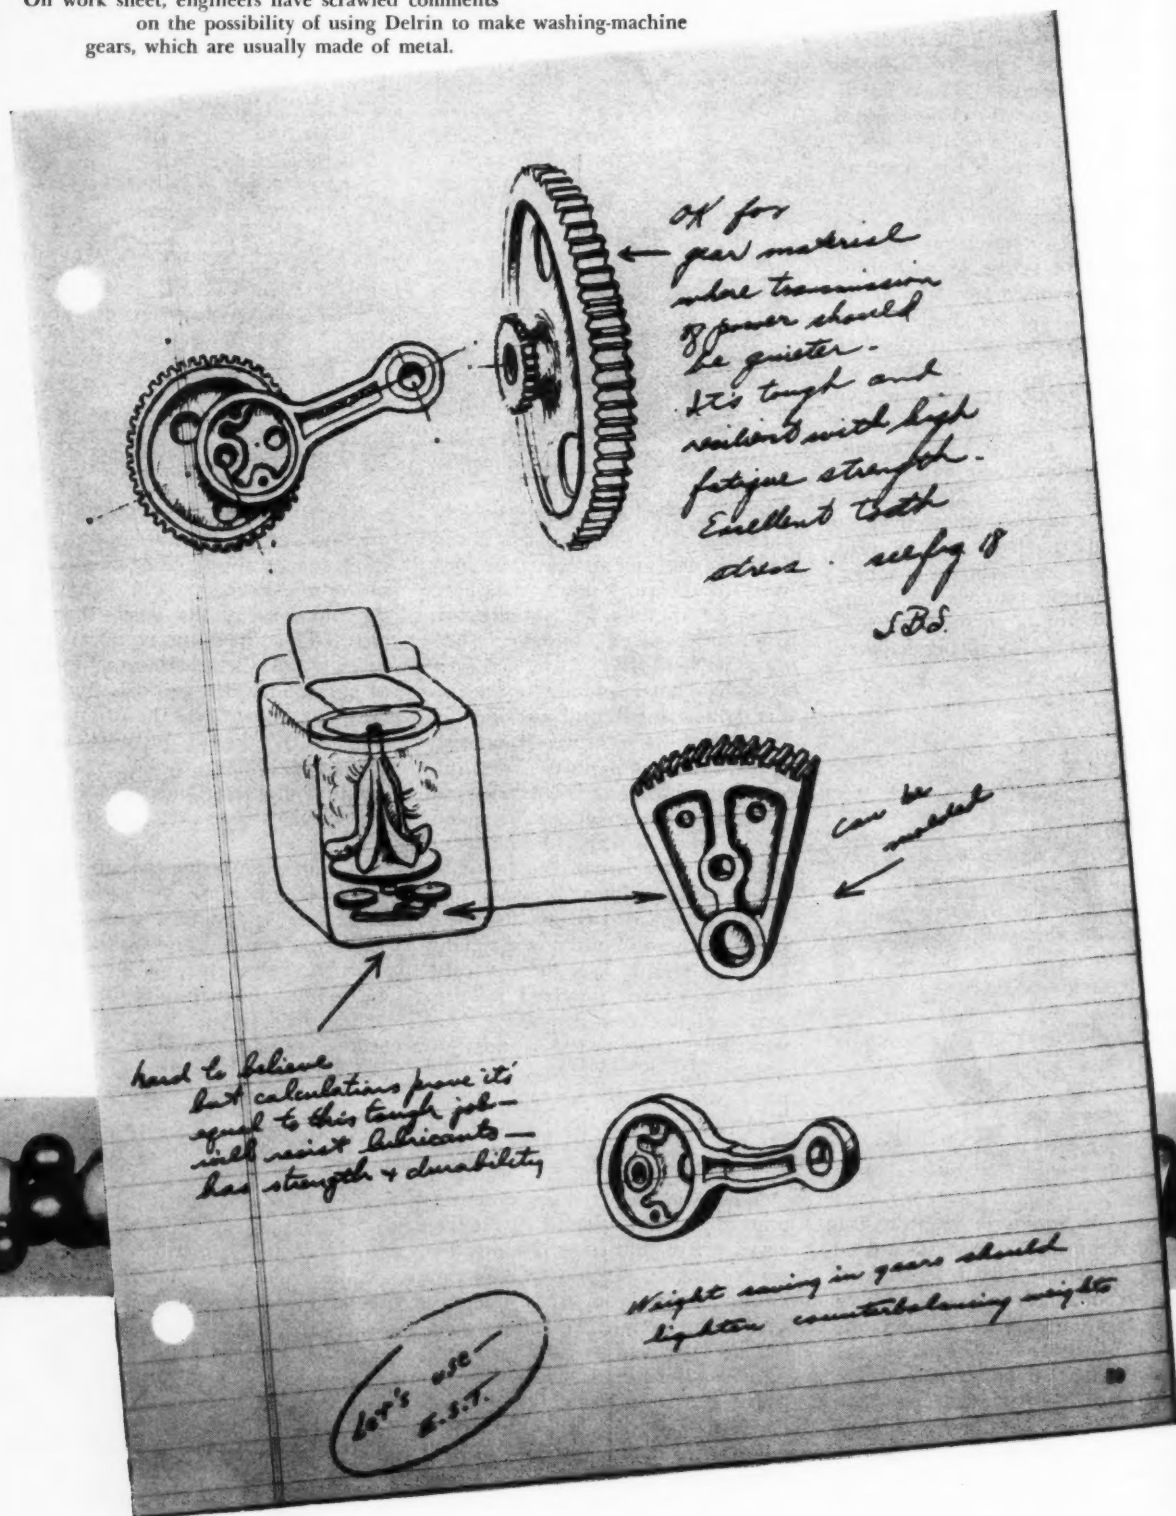 On work sheet, engineers have scrawled comments
on the possibility of using Delrin to make washing-machine
gears, which are usually made of metal.
OK for
gear material
where transmission
of power should
be quieter -
It's tough and
resilient with high
fatigue strength.
Excellent tooth
stress. see fig 18
S.B.S.
can be
molded
hard to believe
but calculations prove it's
equal to this tough job—
will resist lubricants—
has strength + durability
Weight saving in gears should
lighten counterbalancing weights
Let's use—
E.S.T.